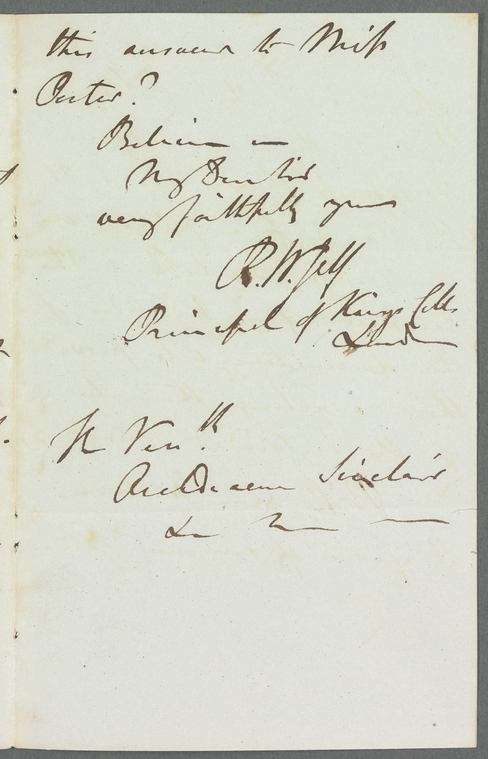 this answer to Miss
Porter?
Believe me
My Dear Sir
very faithfully yours
R. W. Jelf
Principal of Kings Coll.
London
The Ven.ble
Archdeacon Sinclair